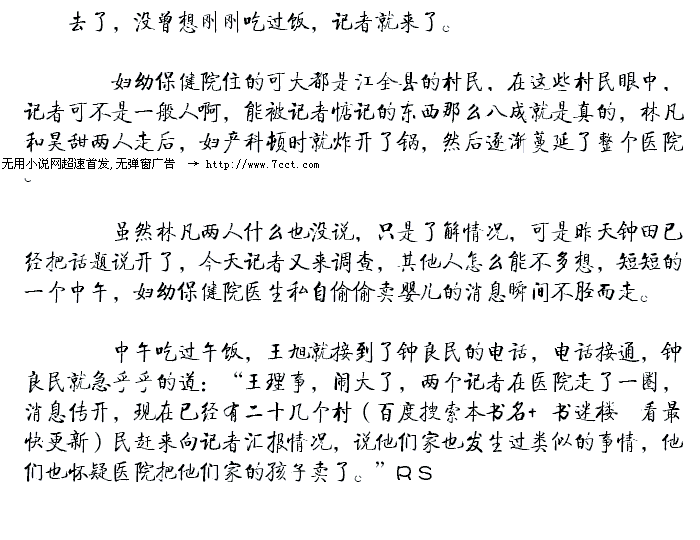 去了，没曾想刚刚吃过饭，记者就来了。
妇幼保健院住的可大都是江全县的村民，在这些村民眼中，
记者可不是一般人啊，能被记者惦记的东西那么八成就是真的，林凡
和吴甜两人走后，妇产科顿时就炸开了锅，然后逐渐蔓延了整个医院
无用小说网超速首发,无弹窗广告 → http://www.7cct.com
。
虽然林凡两人什么也没说，只是了解情况，可是昨天钟田已
经把话题说开了，今天记者又来调查，其他人怎么能不多想，短短的
一个中午，妇幼保健院医生私自偷偷卖婴儿的消息瞬间不胫而走。
中午吃过午饭，王旭就接到了钟良民的电话，电话接通，钟
良民就急乎乎的道：“王理事，闹大了，两个记者在医院走了一圈，
消息传开，现在已经有二十几个村（百度搜索本书名+ 书迷楼 看最
快更新）民赶来向记者汇报情况，说他们家也发生过类似的事情，他
们也怀疑医院把他们家的孩子卖了。”RS